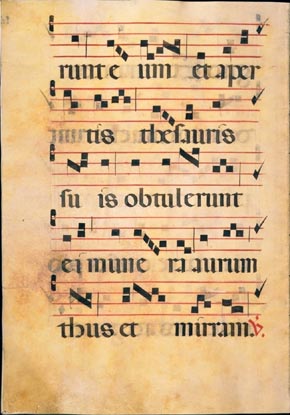 runt e um et aper
tis thesauris
su is obtulerunt
ei mune ra aurum
thus et mirram. V.